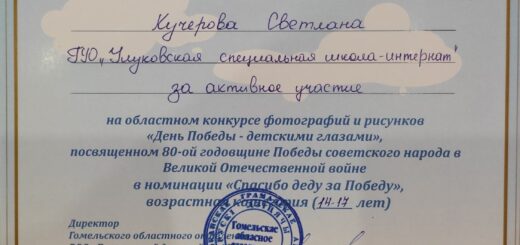 Кучерова Светлана
ГУО „Улуковская специальная школа-интернат"
за активное участие
на областном конкурсе фотографий и рисунков
«День Победы - детскими глазами»,
посвященном 80-ой годовщине Победы советского народа в
Великой Отечественной войне
в номинации «Спасибо деду за Победу»,
возрастная категория (14-17 лет)
Директор
Гомельского областного
Гомельское
абласное